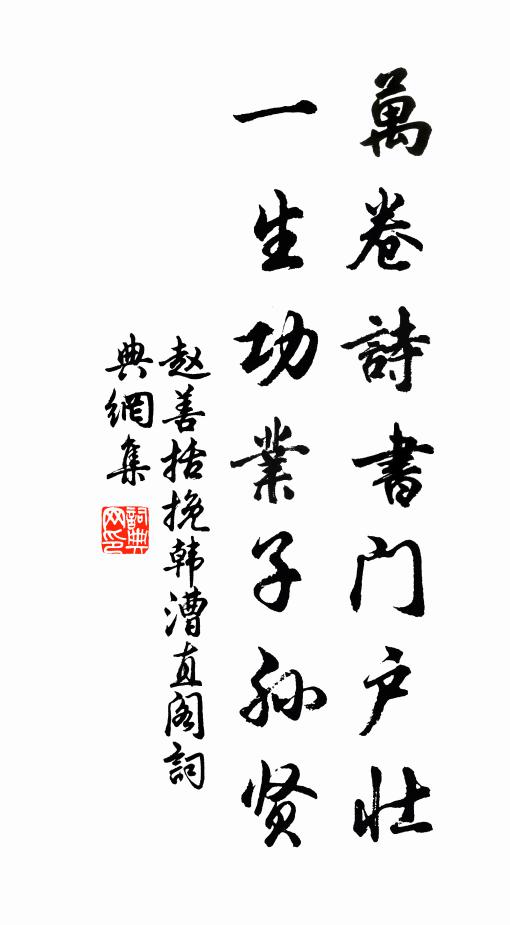 萬卷詩書門户壮
一生功業子孙贤
赵善括挽韩漕直阁詞
典網集
詞典网印